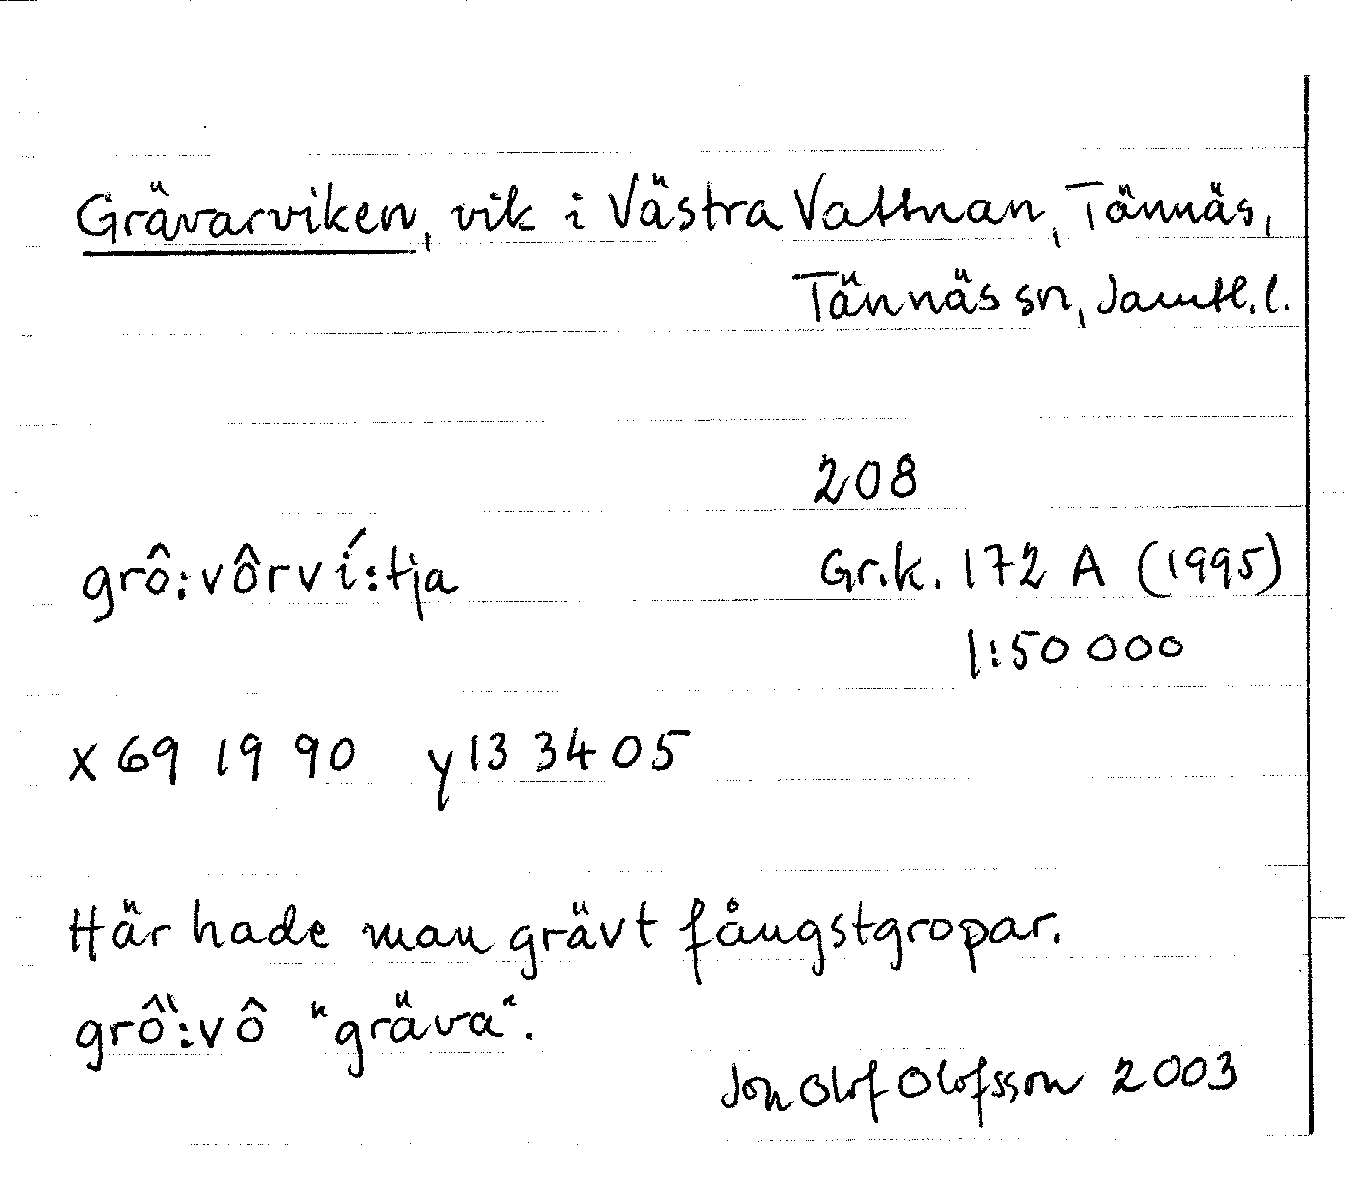 Grävarviken, vik i Västra Vattnan, Tännäs,
Tännäs sn, Jämtl. l.
208
grô:vôrví:tja Gr.k. 172 A (1995)
1:50 000
x 69 19 90 y 13 34 05
Här hade man grävt fångstgropar.
grô̈:vô "gräva".
Jon Olof Olofsson 2003